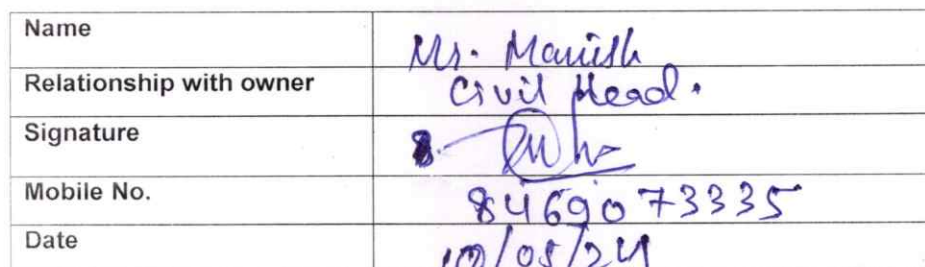 Name Mr. Manish
Relationship with owner Civil Head.
Signature
Mobile No. 8469073335
Date 10/05/24